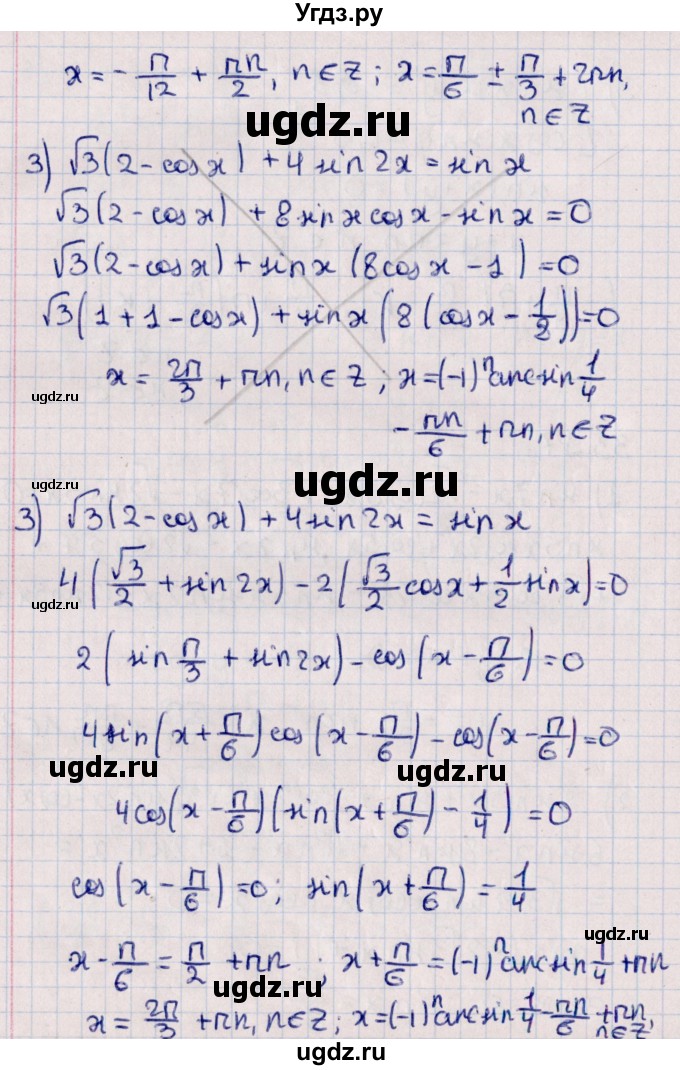 Угдз.ру
x = -π/12 + πn/2, n∈Z; x = π/6 ± π/3 + 2πn,
n∈Z
ugdz.ru
3) √3(2-cosx) + 4sin2x = sinx
√3(2-cosx) + 8sinxcosx - sinx = 0
√3(2-cosx) + sinx(8cosx - 1) = 0
√3(1+1-cosx) + sinx(8(cosx - 1/8)) = 0
x = 2π/3 + πn, n∈Z; x = (-1)ⁿarcsin 1/4
ugdz.ru
- πn/6 + πn, n∈Z
ugdz.ru
ugdz.ru
3) √3(2-cosx) + 4sin2x = sinx
4(√3/2 + sin2x) - 2(√3/2 cosx + 1/2 sinx) = 0
ugdz.ru
2(sin π/3 + sin2x) - cos(x - π/6) = 0
4sin(x + π/6)cos(x - π/6) - cos(x - π/6) = 0
ugdz.ru
ugdz.ru
4cos(x - π/6)(sin(x + π/6) - 1/4) = 0
cos(x - π/6) = 0; sin(x + π/6) = 1/4
ugdz.ru
x - π/6 = π/2 + πn; x + π/6 = (-1)ⁿarcsin 1/4 + πn
ugdz.ru
x = 2π/3 + πn, n∈Z; x = (-1)ⁿarcsin 1/4 - πn/6 + πn,
n∈Z
ugdz.ru